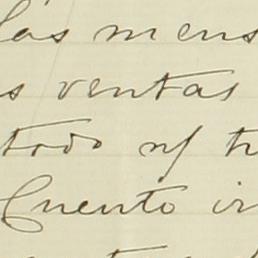 las mens
s ventas
todo n/ tr
Cuento ir